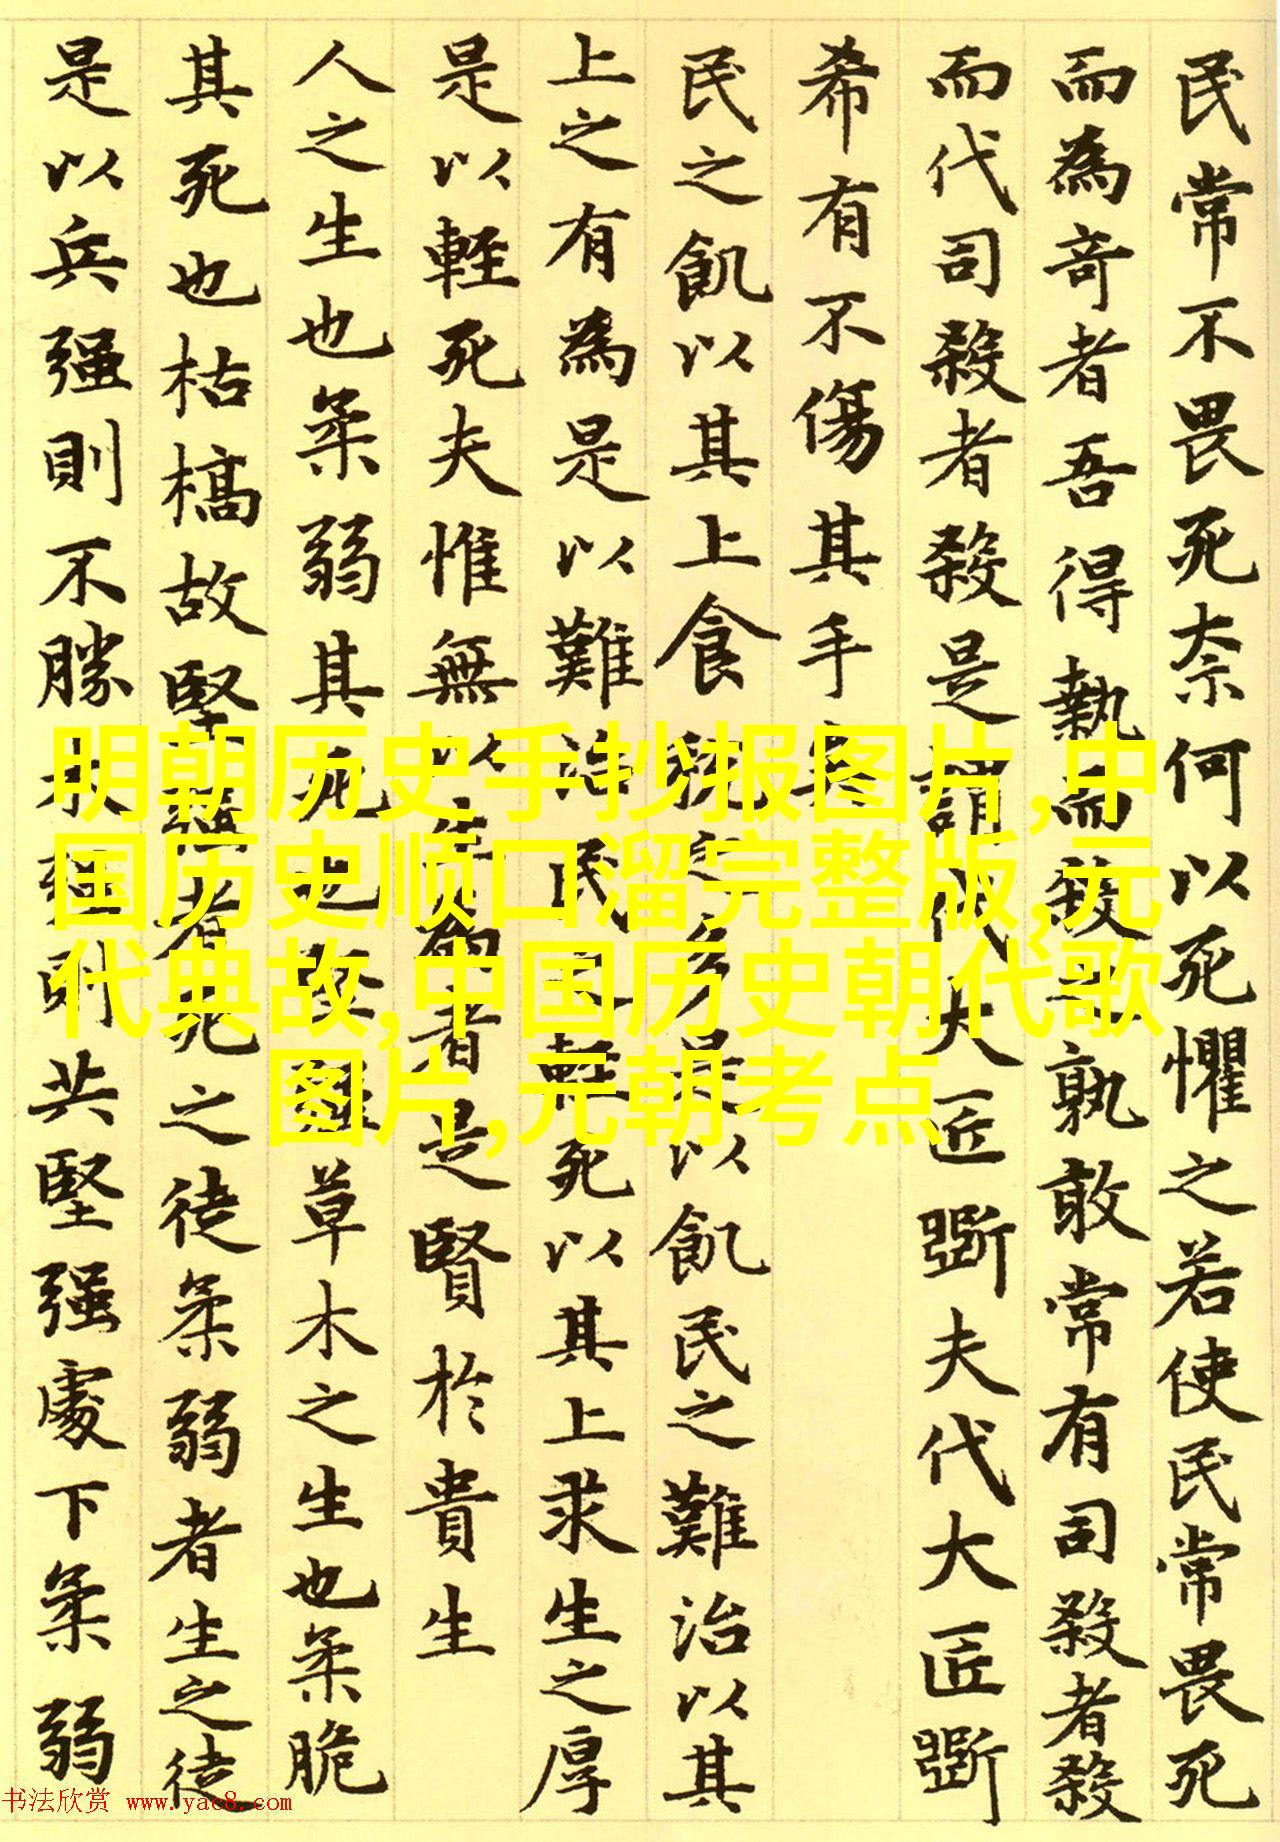 民常不畏死奈何以死懼之若使民常畏死
而為奇者吾得執而殺之孰敢常有司殺者殺
而代司殺者殺是謂代大匠斲夫代大匠斲
希有不傷其手矣
民之飢以其上食稅之多是以飢民之難治以其
上之有為是以難治民之輕死以其上求生之厚
是以輕死夫惟無以生為者是賢於貴生
人之生也柔弱其死也堅強草木之生也柔脆
其死也枯槁故堅强者死之徒柔弱者生之徒
是以兵强則不勝木强則共堅强處下柔弱
明朝历史手抄报图片,中
国历史顺口溜完整版,元
代典故,中国历史朝代歌
图片,元朝考点
书法欣赏 www.yac8.com